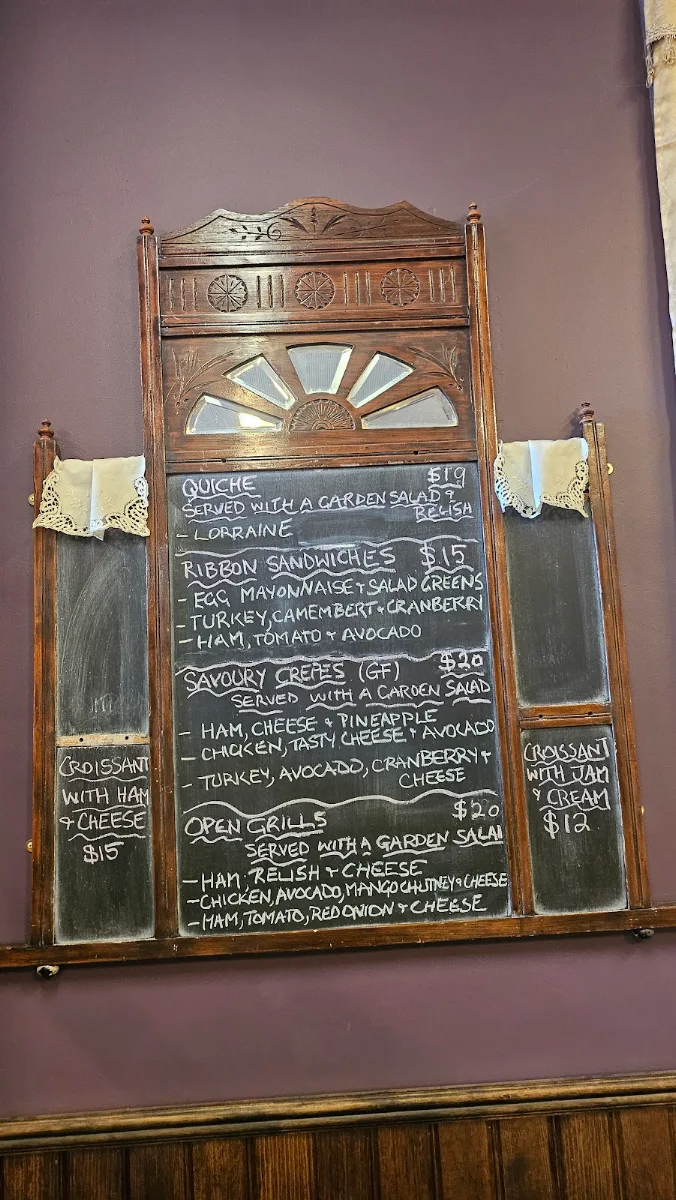 QUICHE $19
SERVED WITH A GARDEN SALAD &
RELISH
- LORRAINE
RIBBON SANDWICHES $15
- EGG MAYONNAISE & SALAD GREENS
- TURKEY, CAMEMBERT & CRANBERRY
- HAM, TOMATO & AVOCADO
SAVOURY CREPES (GF) $20
SERVED WITH A GARDEN SALAD
- HAM, CHEESE & PINEAPPLE
- CHICKEN, TASTY CHEESE & AVOCADO
- TURKEY, AVOCADO, CRANBERRY &
CHEESE
OPEN GRILLS $20
SERVED WITH A GARDEN SALAD
- HAM, RELISH & CHEESE
- CHICKEN, AVOCADO, MANGO CHUTNEY & CHEESE
- HAM, TOMATO, RED ONION & CHEESE
CROISSANT
WITH HAM
& CHEESE
$15
CROISSANT
WITH JAM
& CREAM
$12